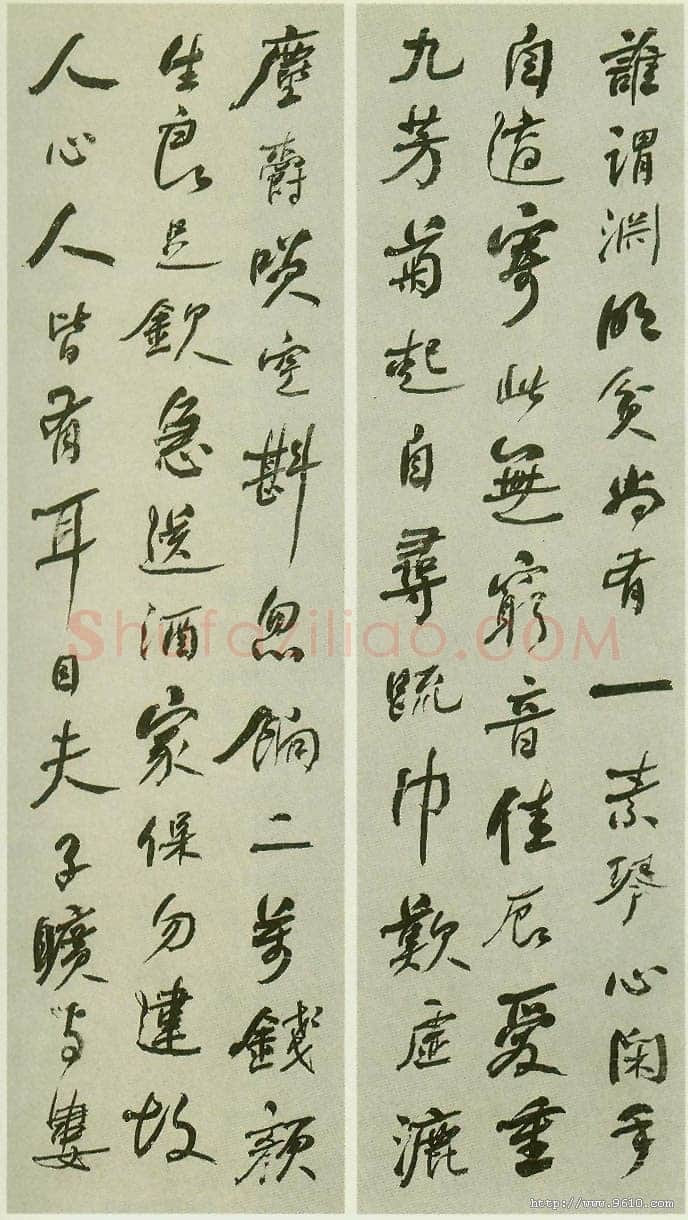 誰謂淵明貧尚有一素琴心閑手
自適寄此無窮音佳辰愛重
九芳菊起自尋疏巾歎虛漉
塵爵咲空斟忽餉二萬錢顏
生良足欽急送酒家保勿違故
人心人皆有耳目夫子曠與婁
Shufaziliao.COM
http://www.9610.com